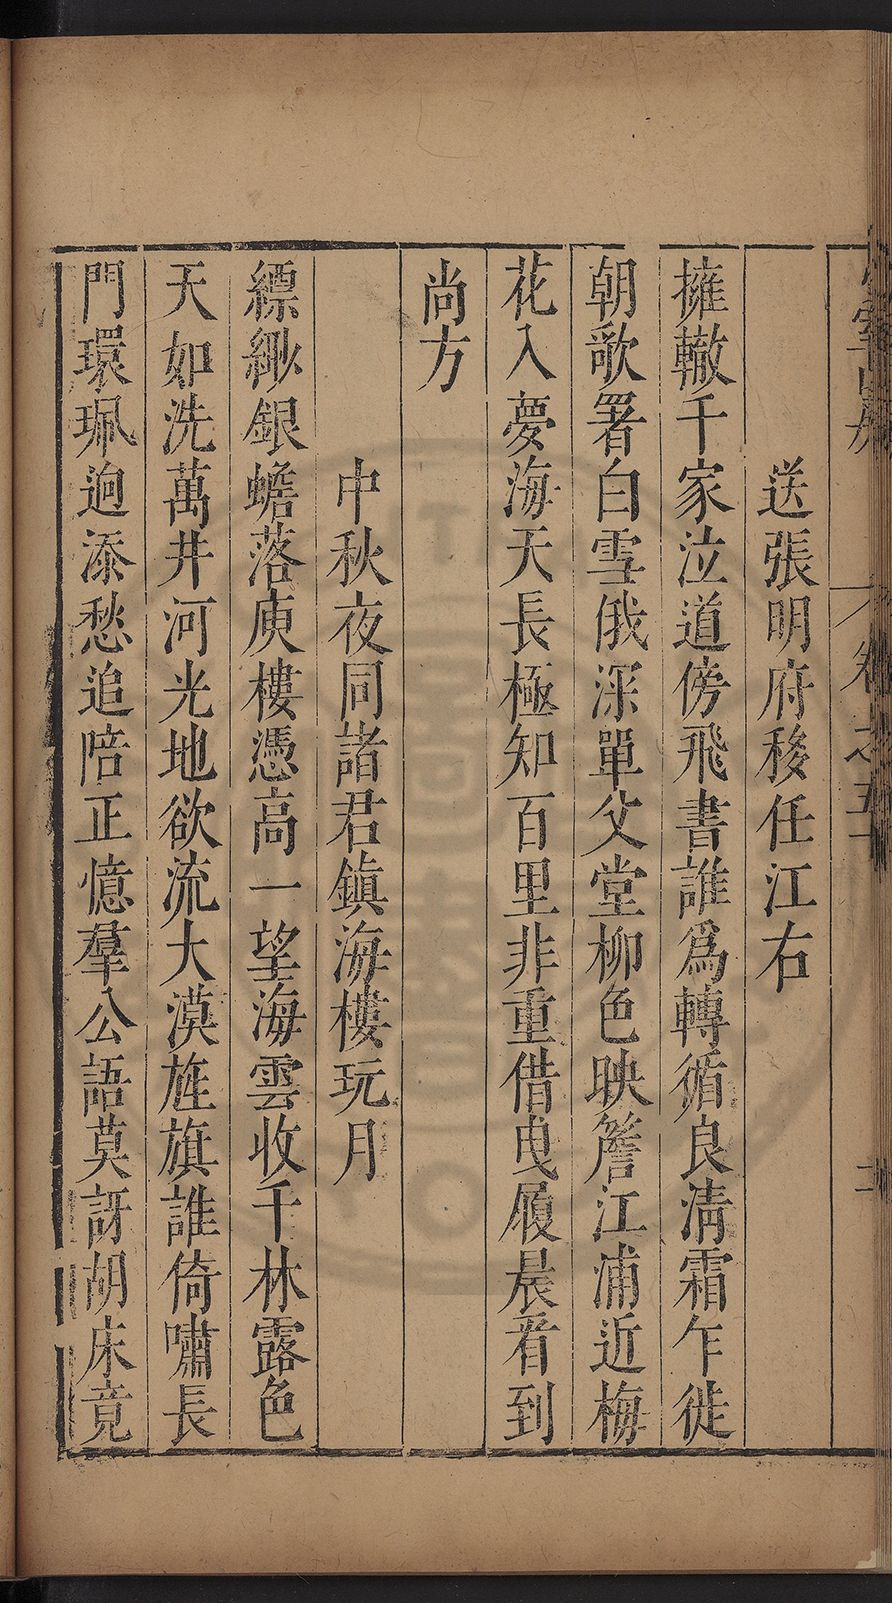 卷之五十
送張明府移任江右
擁轍千家泣道傍飛書誰爲轉循良淸霜乍徙
朝歌署白雪俄深單父堂柳色映簷江浦近梅
花入夢海天長極知百里非重借曳履晨看到
尚方
中秋夜同諸君鎮海樓玩月
縹緲銀蟾落庾樓憑高一望海雲收千林露色
天如洗萬井河光地欲流大漠旌旗誰倚嘯長
門環珮逈添愁追陪正憶羣公語莫訝胡床竟